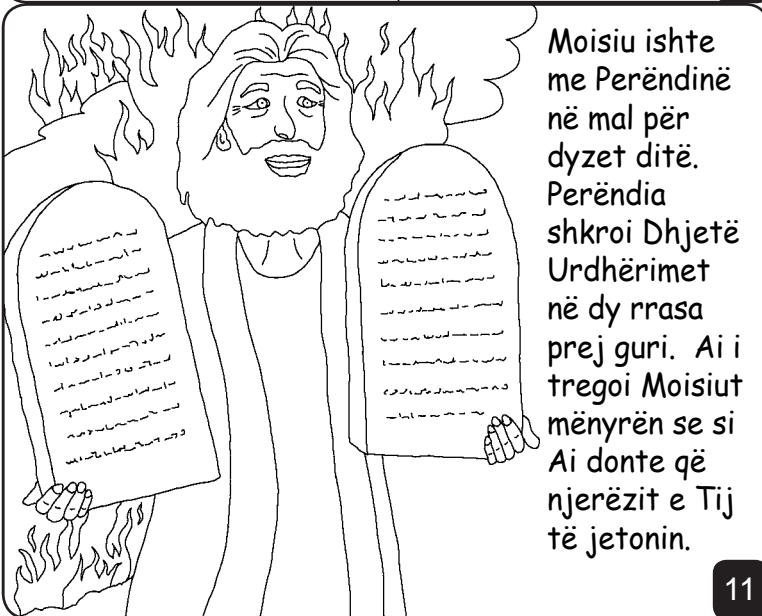 Moisiu ishte
me Perëndinë
në mal për
dyzet ditë.
Perëndia
shkroi Dhjetë
Urdhërimet
në dy rrasa
prej guri.  Ai i
tregoi Moisiut
mënyrën se si
Ai donte që
njerëzit e Tij
të jetonin.
11